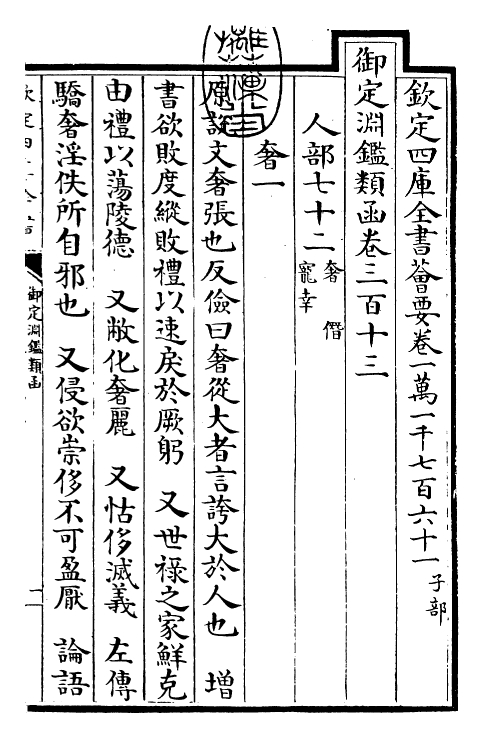 欽定四庫全書薈要卷一萬一千七百六十一 子部
御定淵鑑類函卷三百十三
人部七十二 奢 僭 寵幸
奢一
原說文奢張也反儉曰奢從大者言誇大於人也 增
書欲敗度縱敗禮以速戾於厥躬 又世祿之家鮮克
由禮以蕩陵德 又敝化奢麗 又怙侈滅義 左傳
驕奢淫佚所自邪也 又侵欲崇侈不可盈厭 論語
御定淵鑑類函